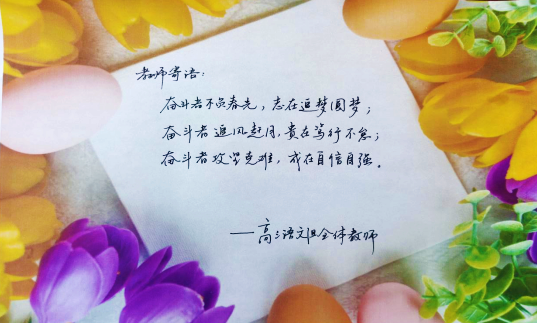 教师寄语：
奋斗者不负春光，志在追梦圆梦；
奋斗者追风赶月，贵在笃行不怠；
奋斗者攻坚克难，成在自信自强。
——高三语文组全体教师